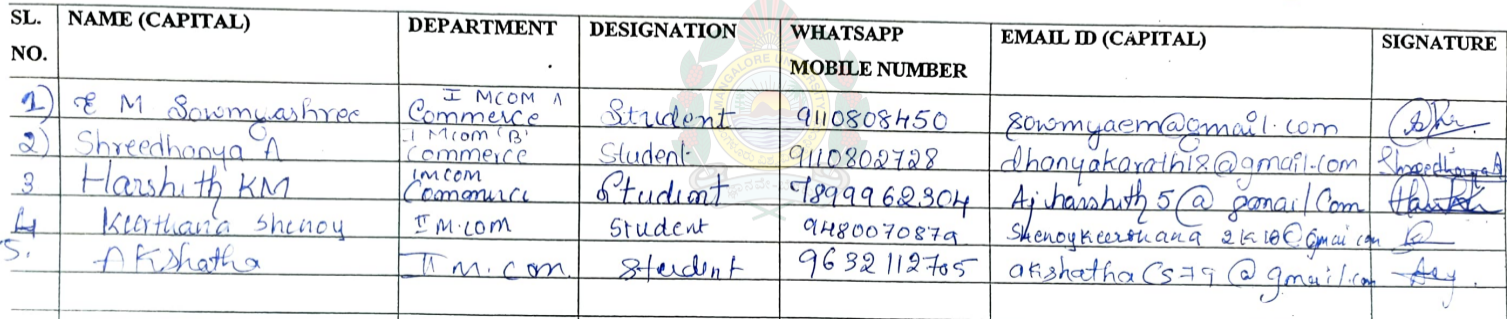 SL. NO. NAME (CAPITAL) DEPARTMENT DESIGNATION WHATSAPP MOBILE NUMBER EMAIL ID (CAPITAL) SIGNATURE
1) E M Sowmyashree I MCOM A Commerce Student 9110808450 sowmyaem@gmail.com
2) Shreedhanya A I Mcom 'B' Commerce Student 9110802728 dhanyakarathi2@gmail.com Shreedhanya A
3 Harshith KM I MCOM Commerce Student 7899962304 Ajharshith5@gamail Com
4 Keerthana Shenoy II M.com Student 9480070879 Shenoykeerthana 2k18@gmai com
5. AKshatha II M.com. Student 9632112705 akshathaCS79@gmail.com